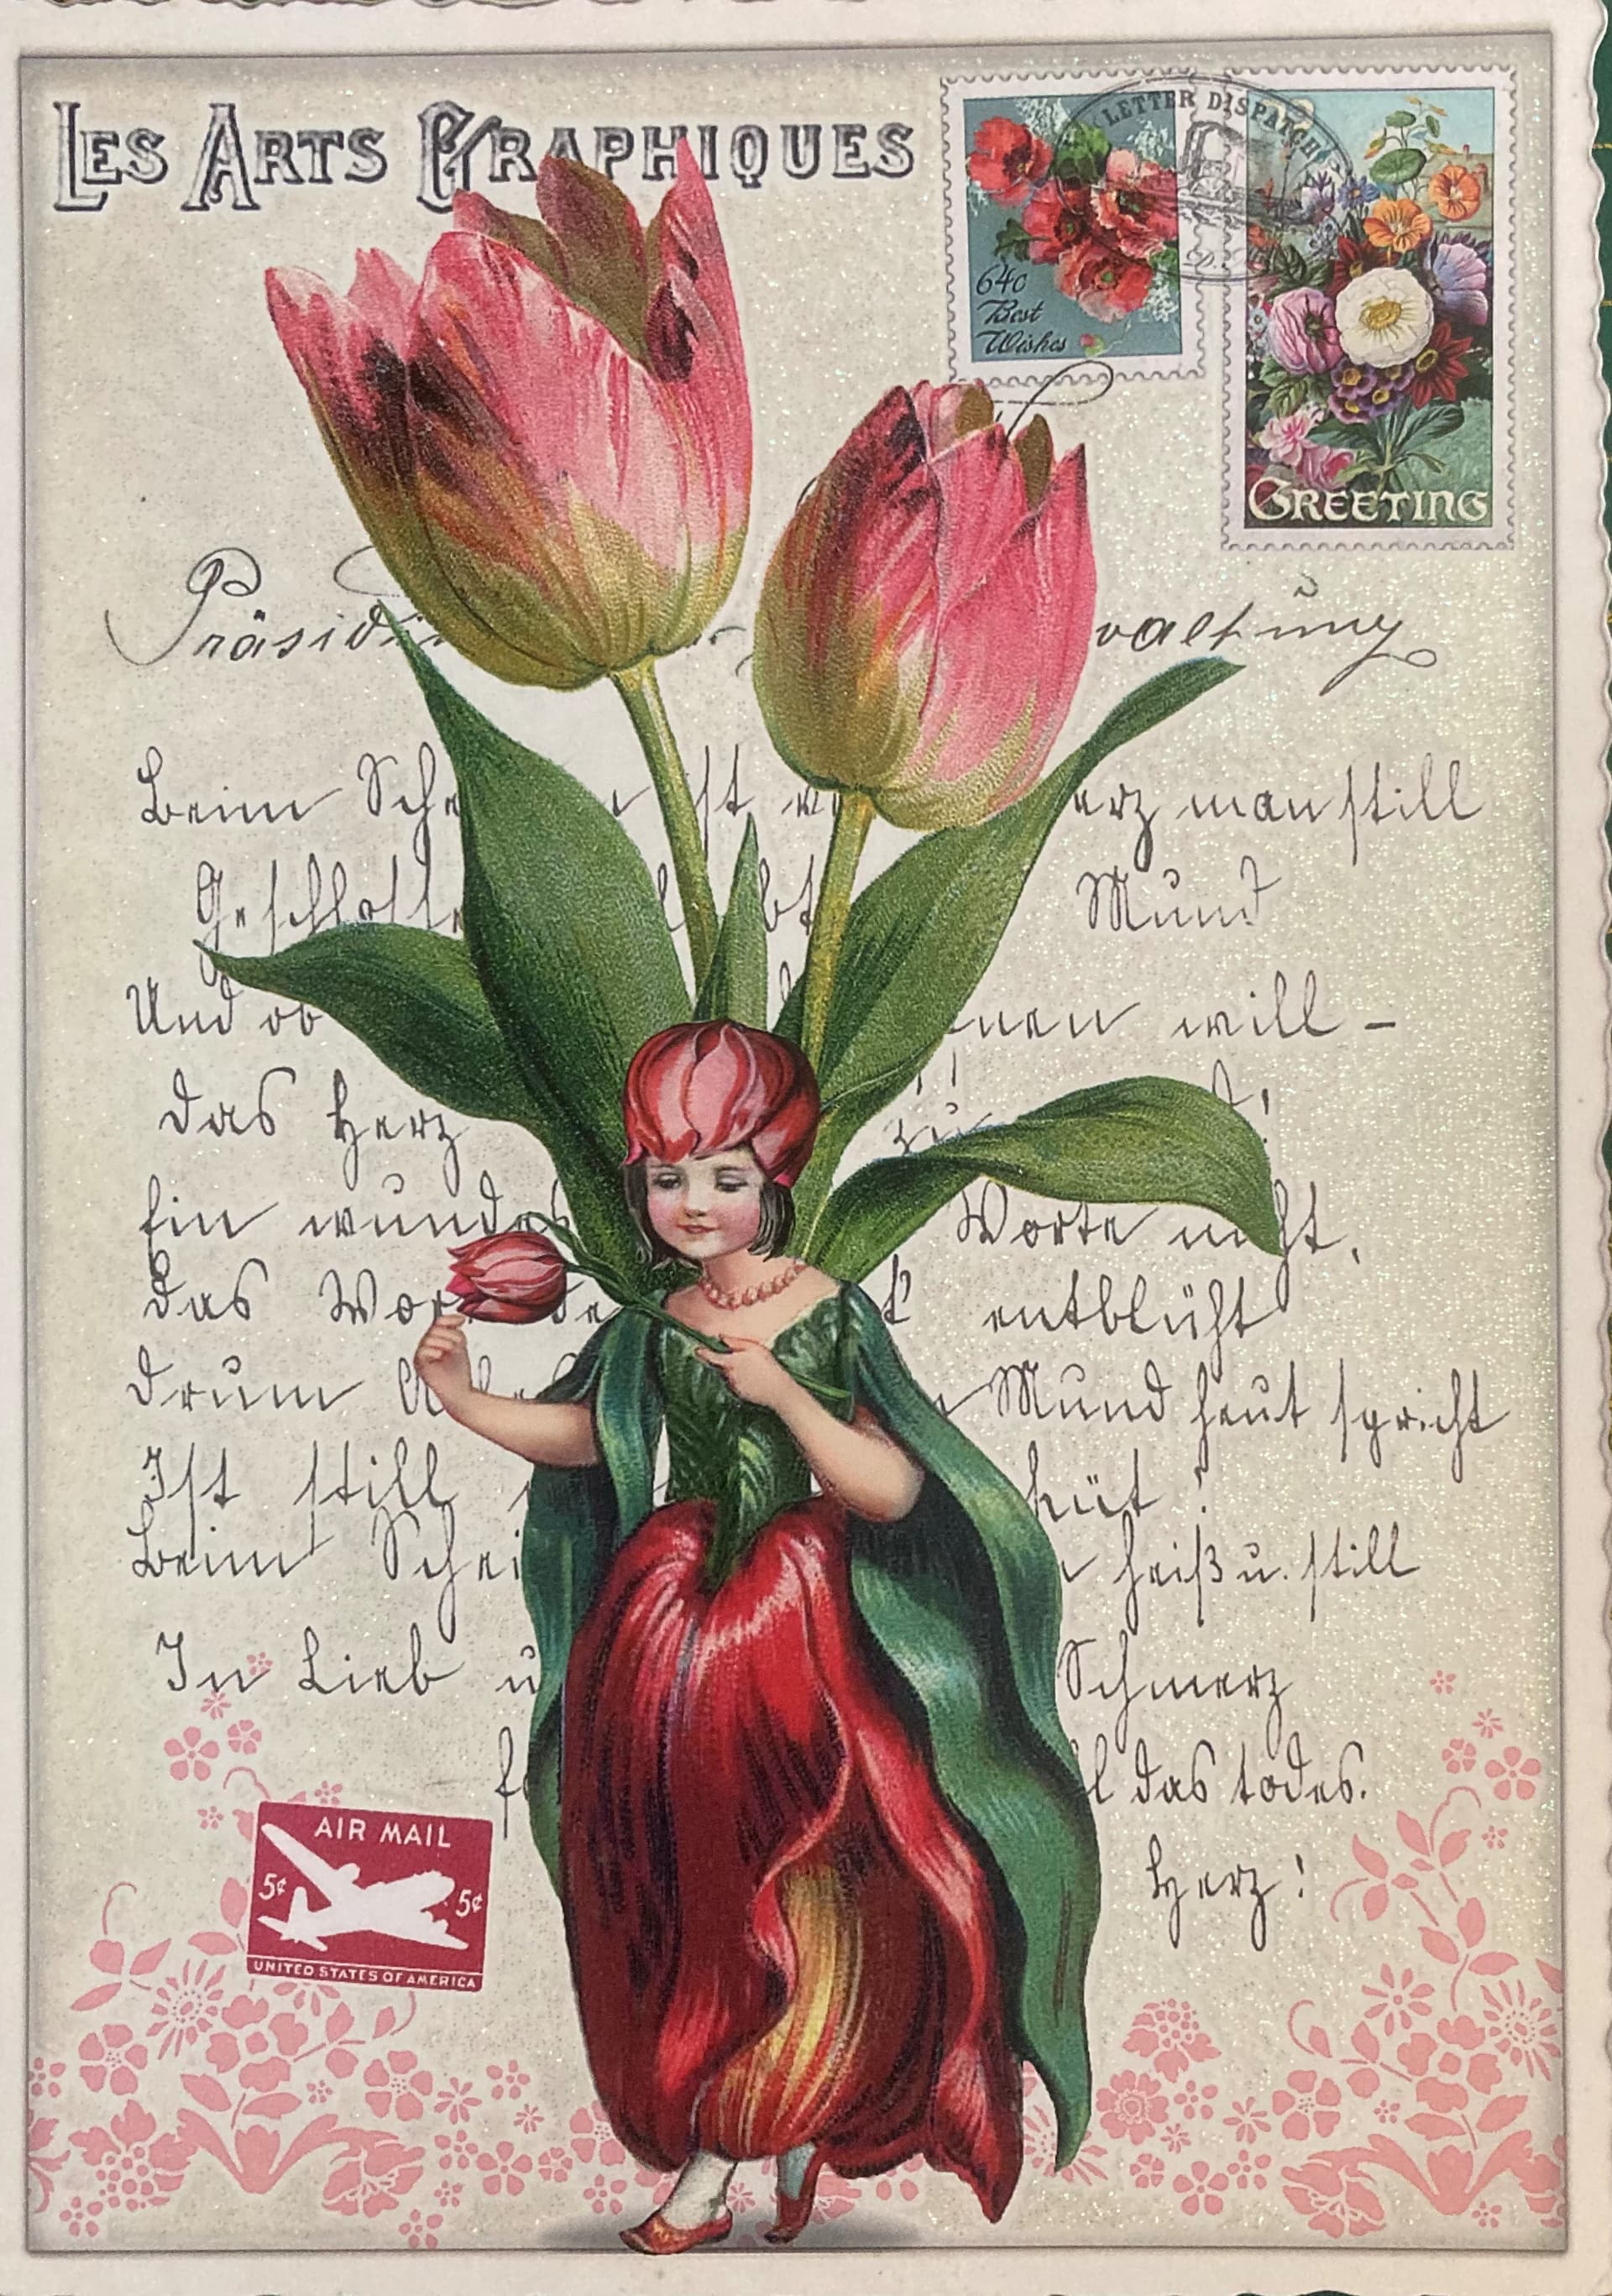 LES ARTS GRAPHIQUES
LETTER DISPATCH
640
Best
Wishes
GREETING
Präsidi valtung
Beim Sche ist erz man still
Geschlosse bt Mund
Und ob nen will –
Das Herz zu !
Ein wundes Worte nicht,
Das Wor de entblüht
Drum Mund heut spricht
Ist still hüt !
Beim Schei heiß u. still
In Lieb u Schmerz
das todes.
Herz !
AIR MAIL
5¢ 5¢
UNITED STATES OF AMERICA